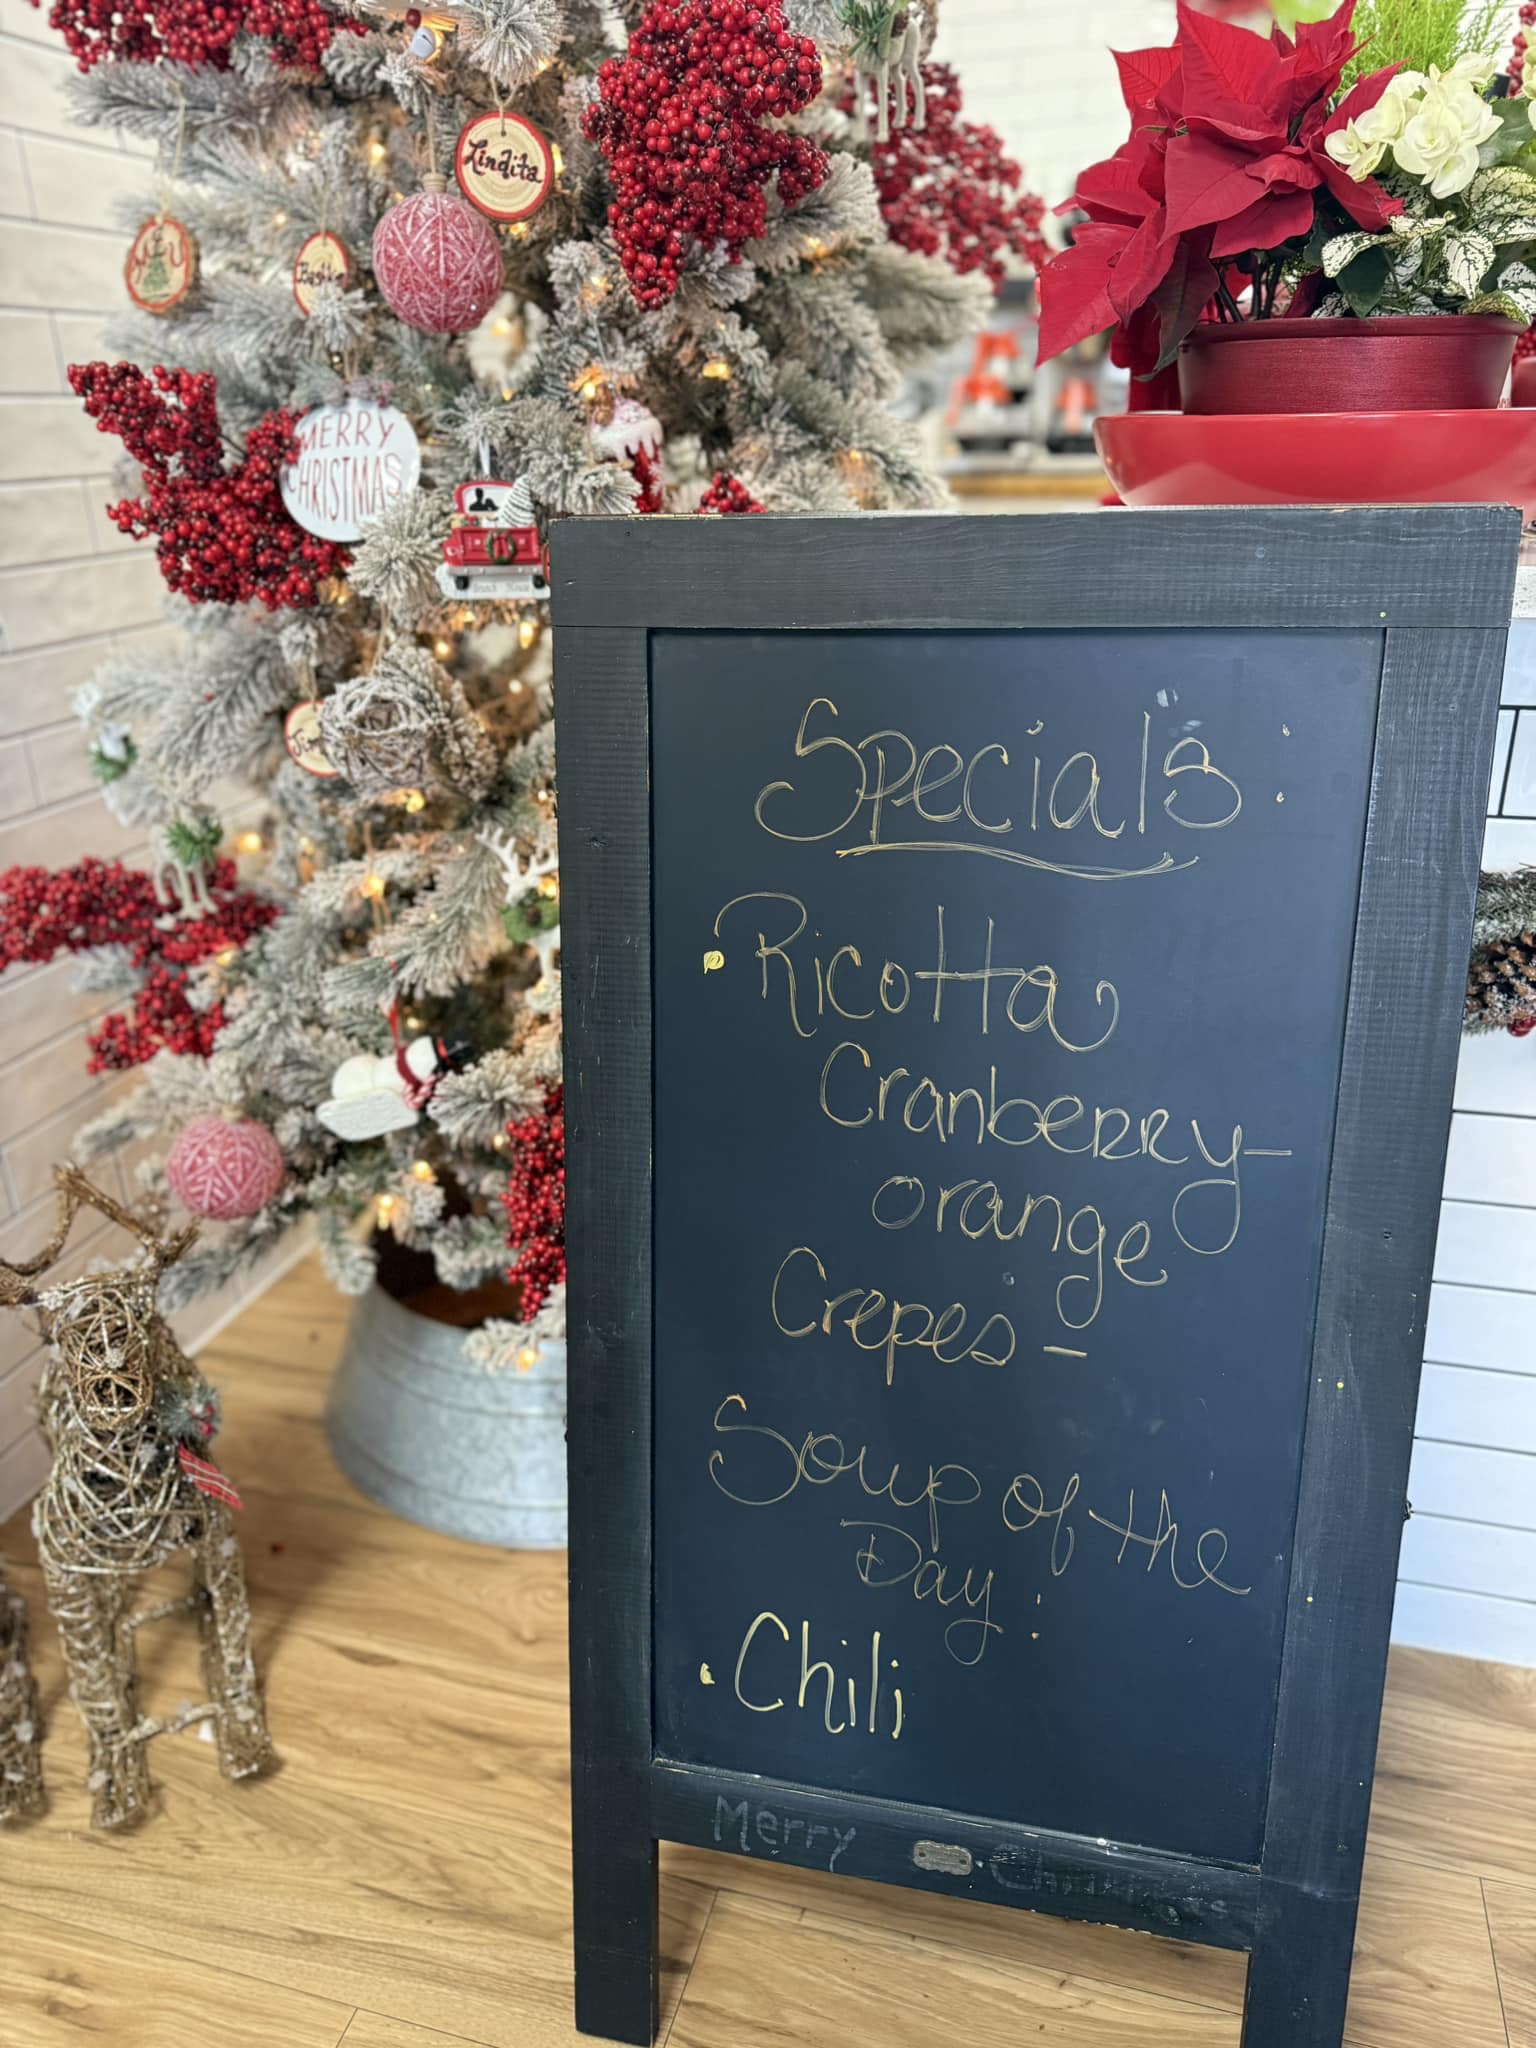 Lindita
MERRY
CHRISTMAS
Specials:
• Ricotta
Cranberry-
orange
Crepes -
Soup of the
Day:
• Chili
Merry